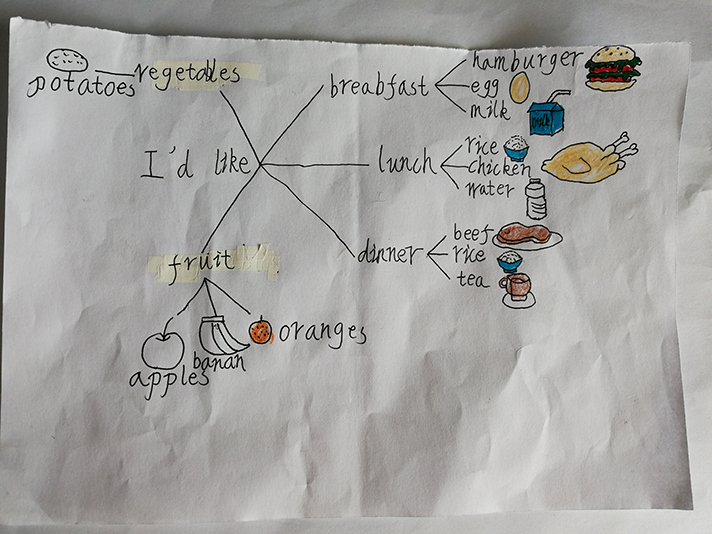 potatoes
vegetables
I'd like
breabfast
hamburger
egg
milk
milk
lunch
rice
chicken
water
dinner
beef
rice
tea
fruit
apples
banan
oranges